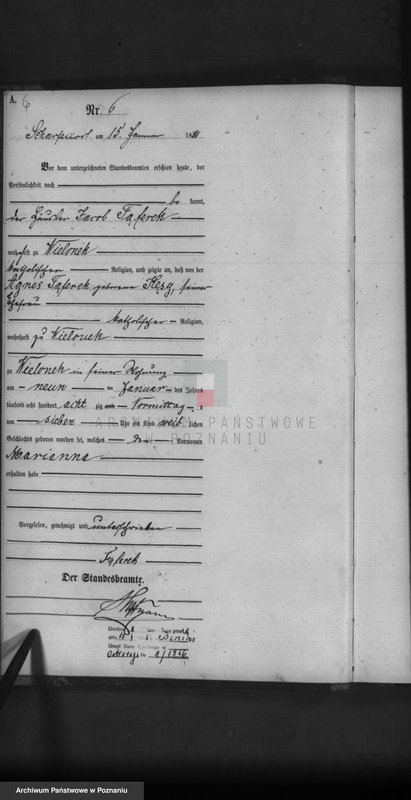 A. 6
Nr. 6
Scharfenort am 15. Januar 18
Vor dem unterzeichneten Standesbeamten erschien heute, der
Persönlichkeit nach
be kannt,
der Häusler Jacob
wohnhaft zu Wielonek
katholischer Religion, und zeigte an, daß von der
Agnes geborene seiner
Ehefrau
katholischer Religion,
wohnhaft zu Wielonek
zu Wielonek in seiner Wohnung
am neun ten Januar des Jahres
tausend acht hundert acht zig Vormittag
um sieben Uhr ein Kind weib lichen
Geschlechts geboren worden sei, welches den Vornamen
Marianna
erhalten habe
Vorgelesen, genehmigt und unterschrieben
Der Standesbeamte.
ARCHIWUM PAŃSTWOWE
W POZNANIU
Archiwum Państwowe w Poznaniu